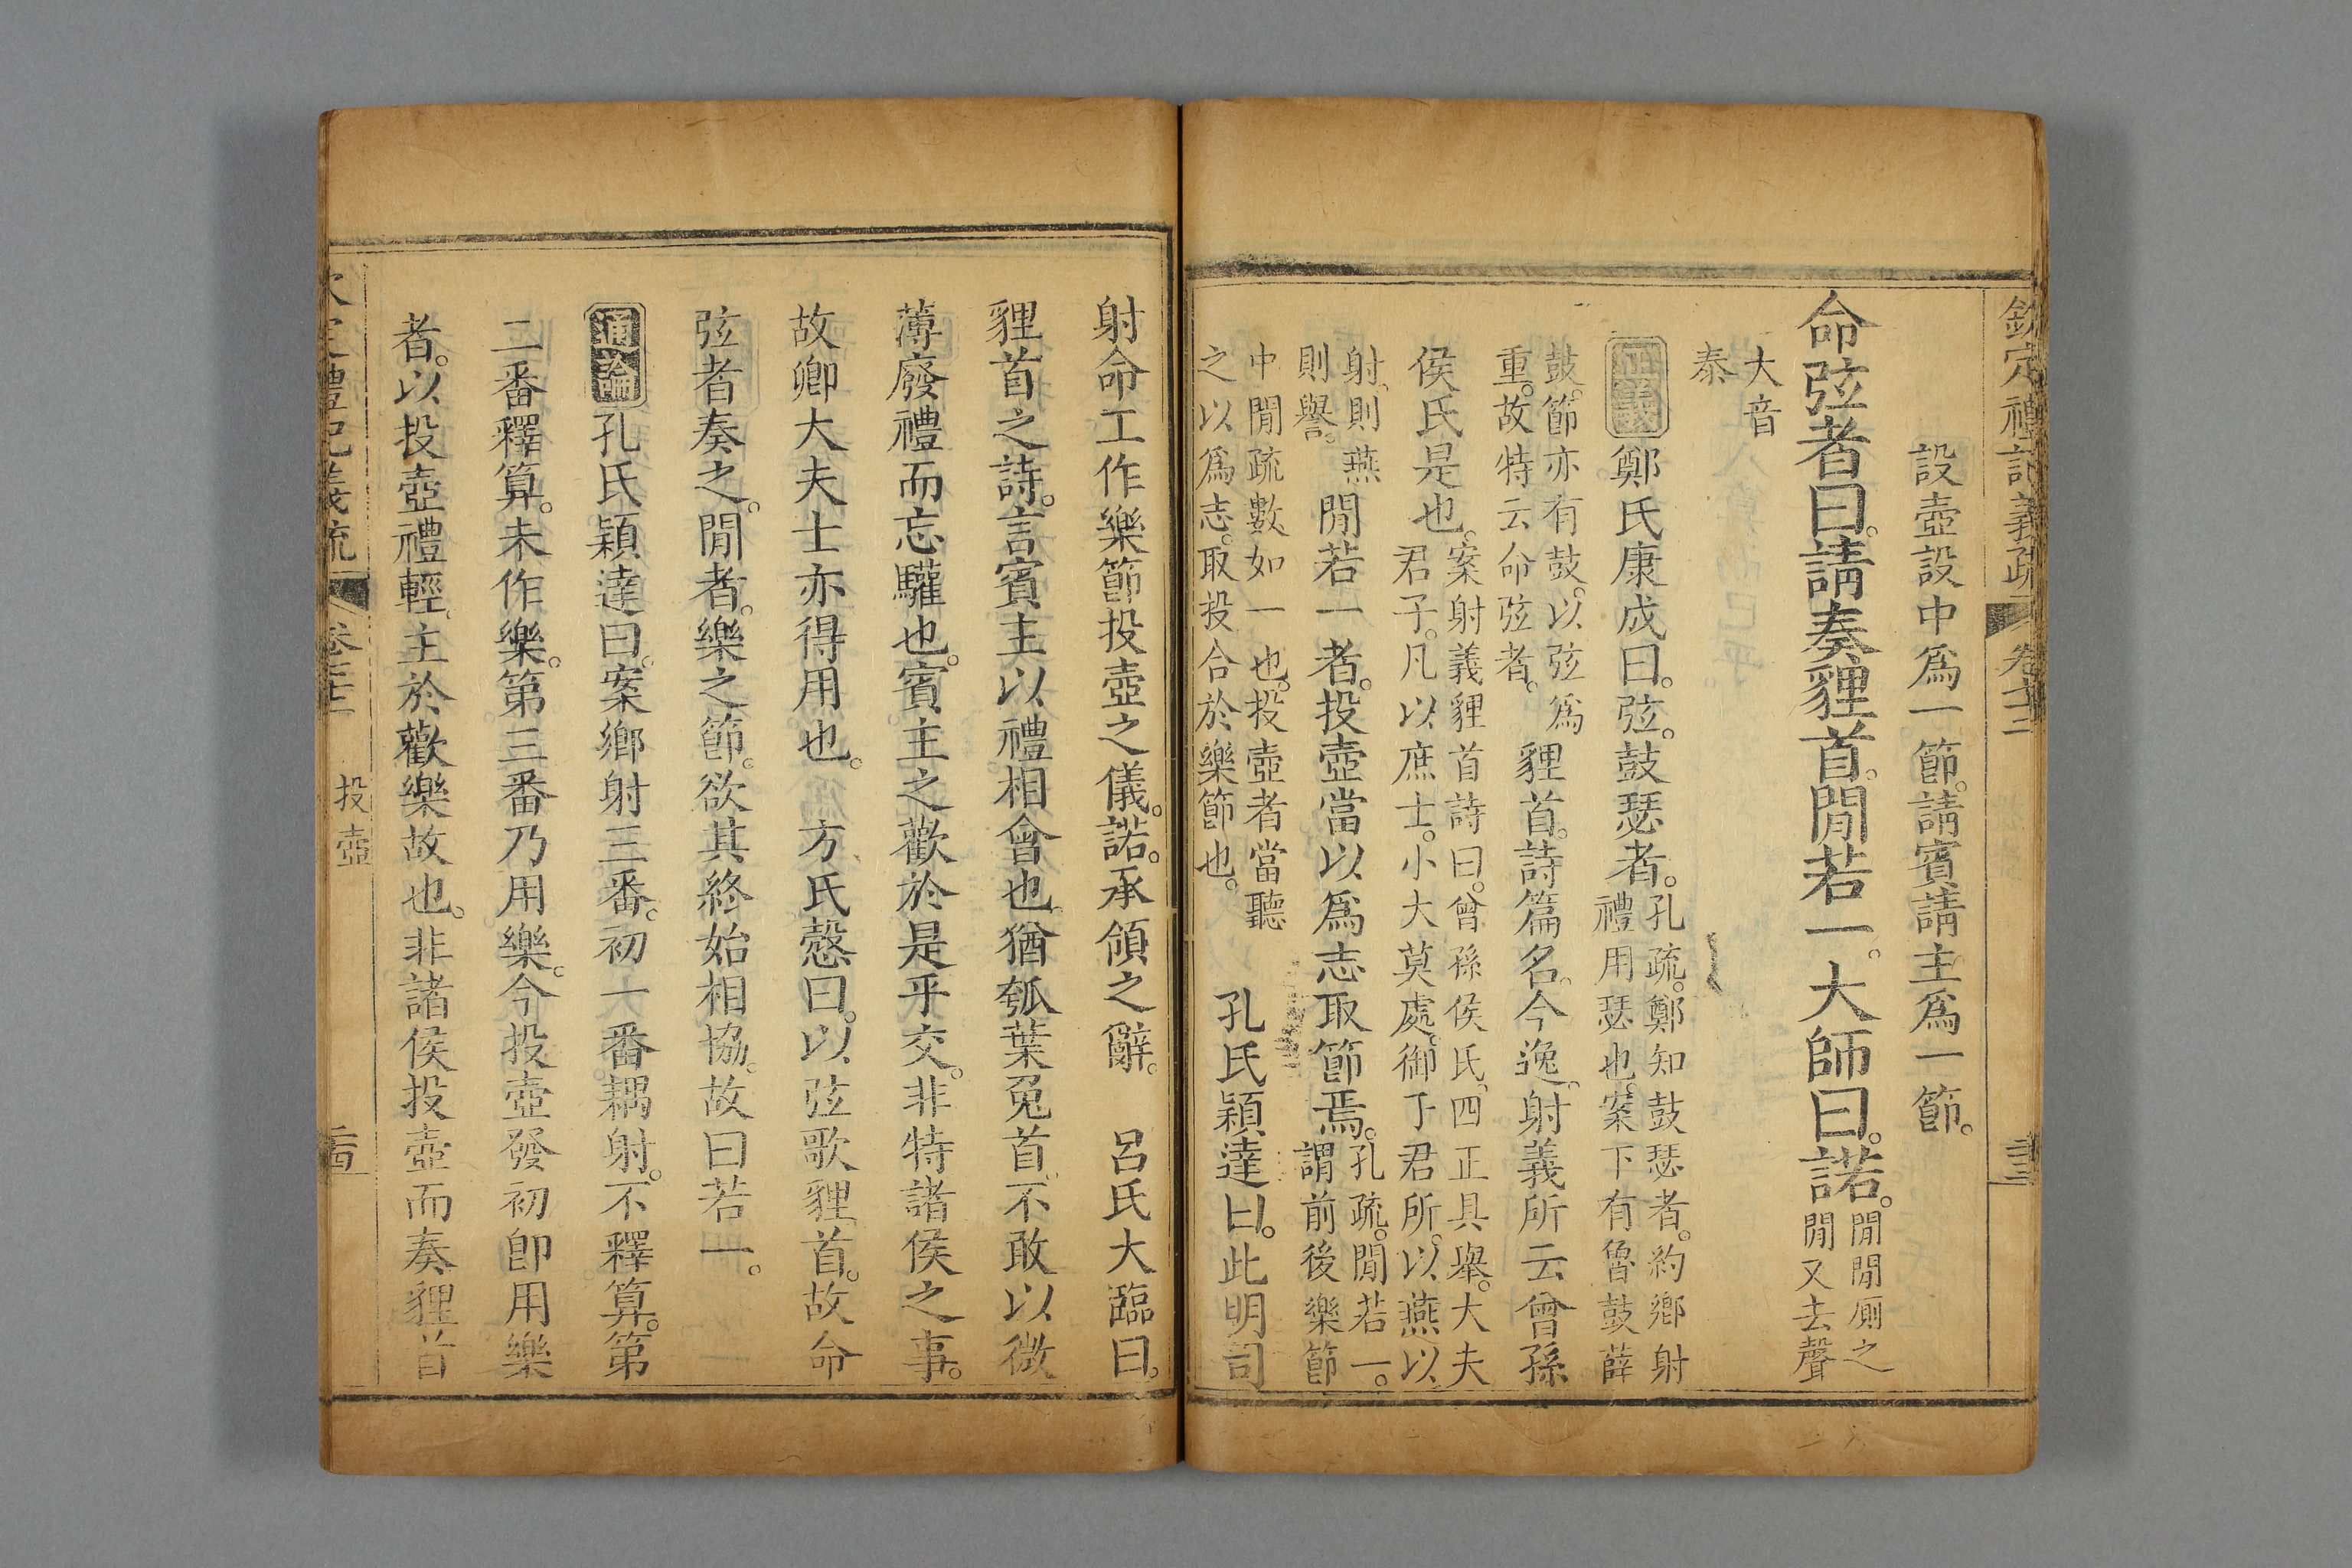 欽定禮記義疏 卷七十二
設壺設中爲一節。請賓請主爲一節。
命弦者曰。請奏貍首。閒若一。大師曰。諾。閒閒厠之閒又去聲
大音泰
正義 鄭氏康成曰。弦。鼓瑟者。孔疏。鄭知鼓瑟者。約鄉射禮用瑟也。案下有魯鼓薛
鼓。節亦有鼓。以弦爲重。故特云命弦者。貍首。詩篇名。今逸。射義所云曾孫
侯氏是也。案射義貍首詩曰。曾孫侯氏。四正具舉。大夫君子。凡以庶士。小大莫處。御于君所。以燕以
射、則燕則譽。閒若一者。投壺當以爲志取節焉。孔疏。閒若一。謂前後樂節
中閒疏數如一也。投壺者當聽之以爲志。取投合於樂節也。 孔氏穎達曰。此明司
射命工作樂節投壺之儀。諾。承領之辭。 呂氏大臨曰。
貍首之詩。言賓主以禮相會也。猶瓠葉兔首。不敢以微
薄廢禮而忘驩也。賓主之歡於是乎交。非特諸侯之事。
故卿大夫士亦得用也。 方氏慤曰。以弦歌貍首。故命
弦者奏之。閒者。樂之節。欲其終始相協。故曰若一。
通論 孔氏穎達曰。案鄉射三番。初一番耦射。不釋算。第
二番釋算。未作樂。第三番乃用樂。今投壺發初卽用樂
者。以投壺禮輕。主於歡樂故也。非諸侯投壺而奏貍首
禮記義疏 投壺